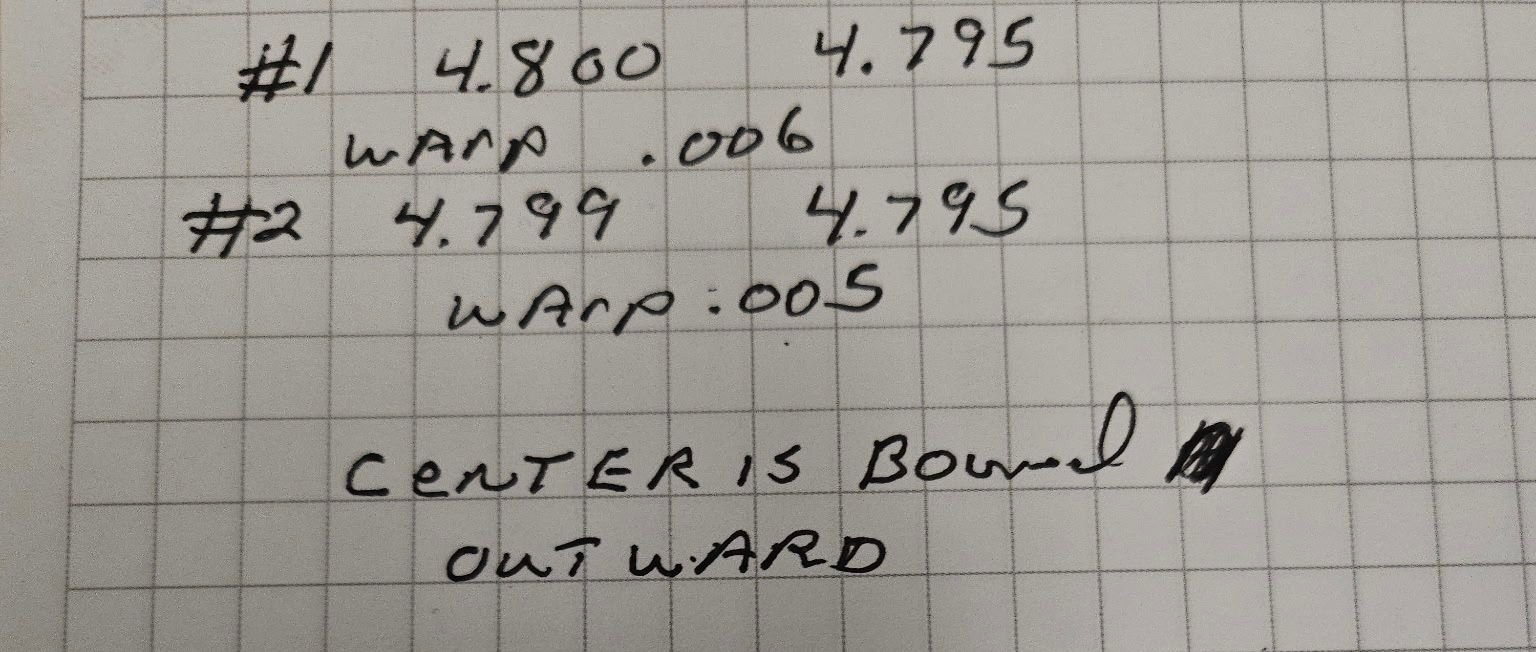 #1 4.800 4.795
WARP .006
#2 4.799 4.795
WARP .005
CENTER IS Bowed
OUTWARD